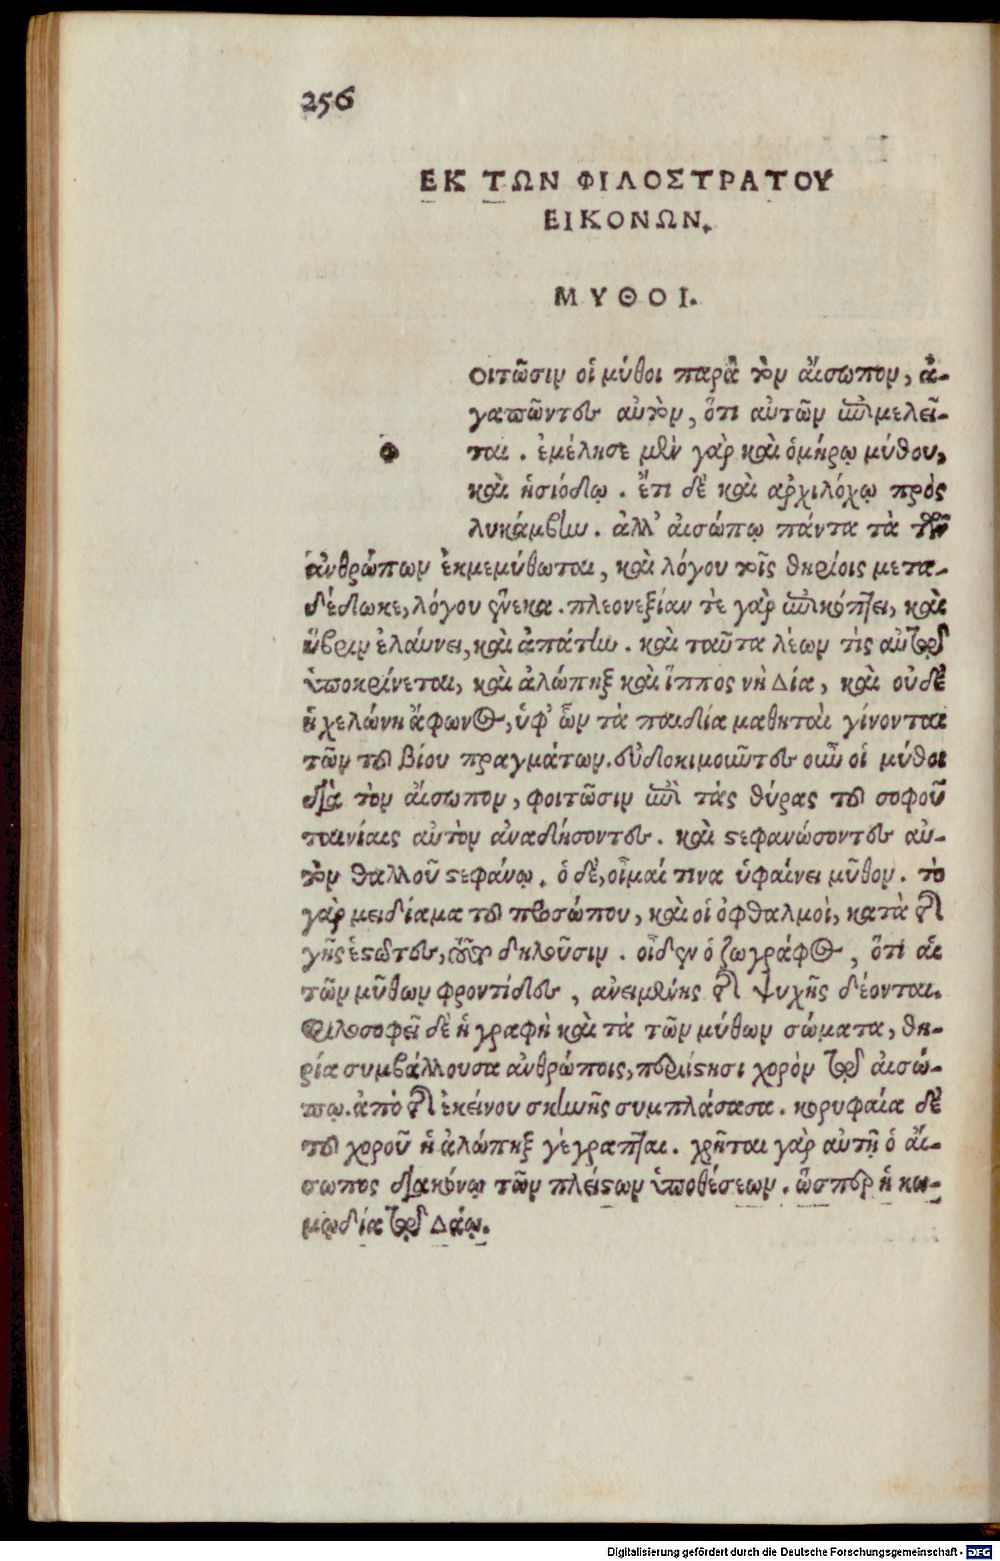 256
ΕΚ ΤΩΝ ΦΙΛΟΣΤΡΑΤΟΥ
ΕΙΚΟΝΩΝ.
ΜΥΘΟΙ.
φ
οιτῶσιν οἱ μύθοι παρὰ τὸν ἄισωπον, ἀ-
γαπῶντες αὐτὸν, ὅτι αὐτῶν ἐπιμελεῖ-
ται. ἐμέλησε μὲν γὰρ καὶ ὁμήρῳ μύθου,
καὶ ἡσιόδῳ. ἔτι δὲ καὶ αρχιλόχῳ πρὸς
λυκάμβην. ἀλλ' ἀισώπῳ πάντα τὰ τῶν
ἀνθρώπων ἐκμεμύθωται, καὶ λόγου τοῖς θηρίοις μετα-
δέδωκε, λόγου ἕνεκα. πλεονεξίαν τὲ γὰρ ἐπικόπτει, καὶ
ὕβριν ἐλάυνει, καὶ ἀπάτην. καὶ ταῦτα λέων τὶς αὐτῷ
ὑποκρίνεται, καὶ ἀλώπηξ καὶ ἵππος νὴ Δία, καὶ οὐδὲ
ἡ χελώνη ἄφωνος, ὑφ' ὧν τὰ παιδία μαθηταὶ γίνονται
τῶν τοῦ βίου πραγμάτων. εὐδοκιμοῦντες οὖν οἱ μύθοι
διὰ τὸν ἄισωπον, φοιτῶσιν ἐπὶ τὰς θύρας τοῦ σοφοῦ
ταινίαις αὐτὸν ἀναδήσοντες. καὶ στεφανώσοντες αὐ-
τὸν θαλλοῦ στεφάνῳ. ὁ δὲ, οἶμαί τινα ὑφαίνει μῦθον. τὸ
γὰρ μειδίαμα τοῦ προσώπου, καὶ οἱ ὀφθαλμοὶ, κατὰ τῆς
γῆς ἑστῶτες, τοῦτο δηλοῦσιν. οἶδεν ὁ ζωγράφος, ὅτι αἱ
τῶν μῦθων φροντίδες, ανειμένης τῆς ψυχῆς δέονται.
Φιλοσοφεῖ δὲ ἡ γραφὴ καὶ τὰ τῶν μύθων σώματα, θη-
ρία συμβάλλουσα ἀνθρώποις, περιίστησι χορὸν τῷ ἀισώ-
πῳ. ἀπὸ τῆς ἐκείνου σκηνῆς συμπλάσασα. κορυφαία δὲ
τοῦ χοροῦ ἡ ἀλώπηξ γέγραπται. χρῆται γὰρ αὐτῇ ὁ ἄι-
σωπος διακόνῳ τῶν πλείστων ὑποθέσεων. ὥσπερ ἡ κω-
μῳδία τῷ Δάῳ.
Digitalisierung gefördert durch die Deutsche Forschungsgemeinschaft - DFG